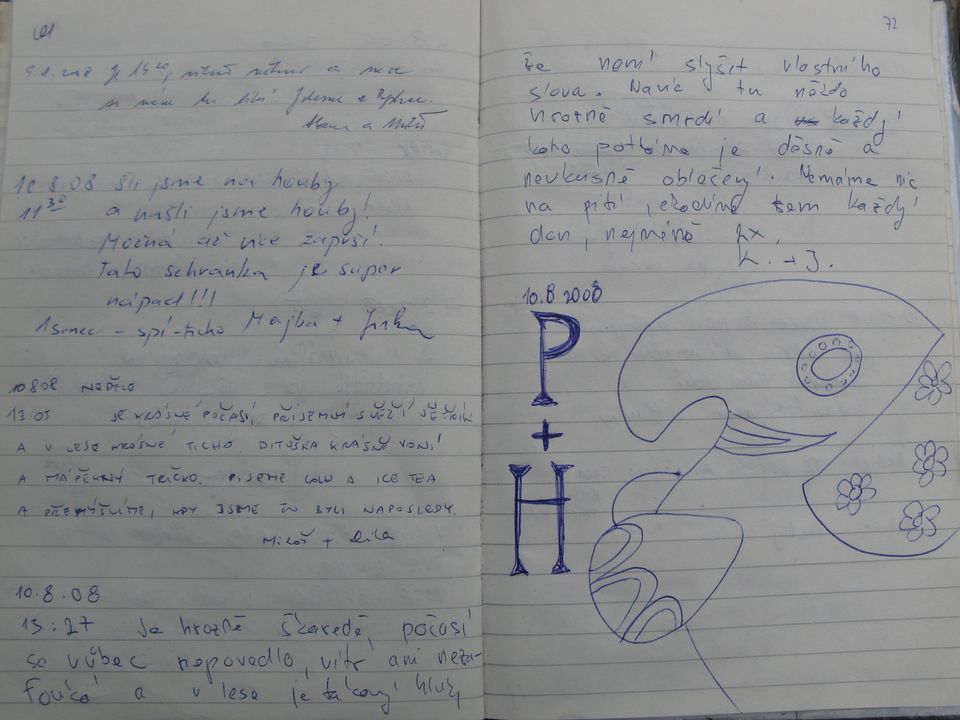 71
je 14 20,
a
se nám tu líbí. Jdeme z
a
10.8.08 šli jsme na houby
11 30 a našli jsme houby!
Možná až více zaprší.
Tato schránka je super
nápad!!!
- spí - ticho Majka + Jirka
10.8.08 NEDĚLE
13.05 JE KRÁSNÉ POČASÍ, PŘÍJEMNÝ SVĚŽÍ VĚTŘÍK
A V LESE KRÁSNÉ TICHO. DITUŠKA KRÁSNĚ VONÍ
A MÁ PĚKNÝ TRIČKO. PIJEME COLU A ICE TEA
A PŘEMÝŠLÍME, KDY JSME TU BYLI NAPOSLEDY.
Miloš + Dita
10.8.08
13:27 Je hrozně škaredě, počasí
se vůbec nepovedlo, vítr ani neza-
fouká a v lese je takový hluk,
72
že není slyšet vlastního
slova. Navíc tu někdo
hrozně smrdí a každý
koho potkáme je děsně a
nevkusně oblečený. Nemáme nic
na pití, chodíme sem každý
den, nejméně 2x.
K. + J.
10.8 2008
P
+
H